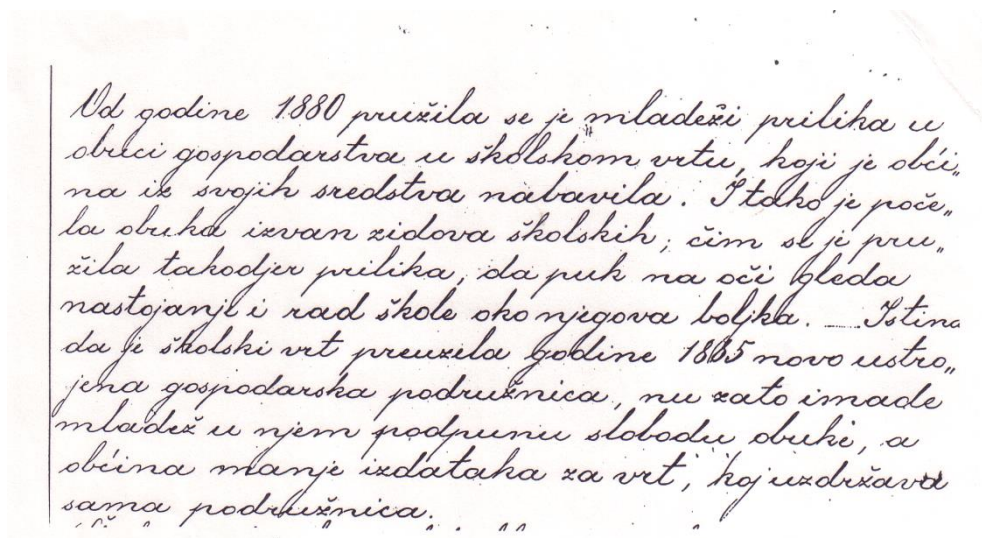 Od godine 1880 pružila se je mladeži prilika u
obuci gospodarstva u školskom vrtu, koji je obći„
na iz svojih sredstva nabavila. I tako je poče„
la obuka izvan zidova školskih; čim se je pru„
žila takodjer prilika, da puk na oči gleda
nastojanje i rad škole oko njegova boljka. — Istina
da je školski vrt preuzela godine 1885 novo ustro„
jena gospodarska podružnica, nu zato imade
mladež u njem podpunu slobodu obuke, a
občina manje izdataka za vrt, koj uzdržava
sama podružnica.